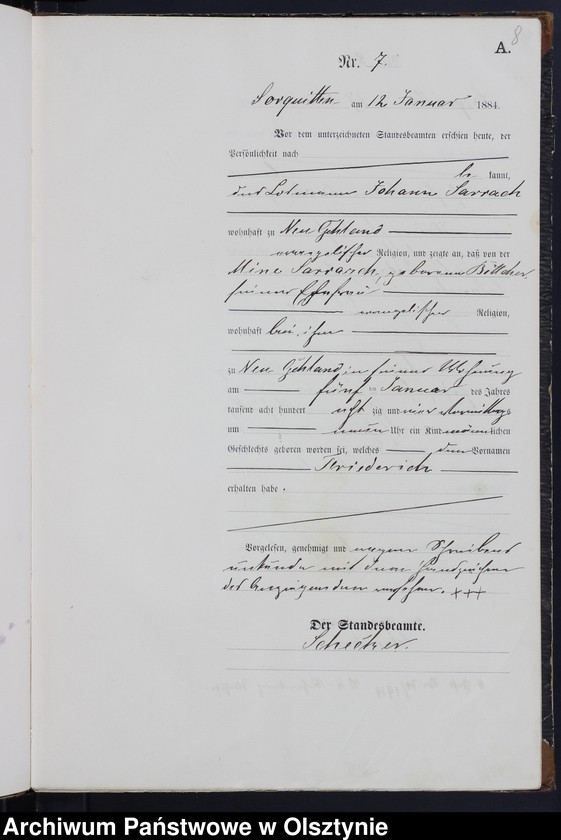 8
A.
Nr. 7.
Sorquitten am 12 Januar 1884.
Vor dem unterzeichneten Standesbeamten erschien heute, der
Persönlichkeit nach
be kannt,
Johann Sarrach
wohnhaft zu Neu Gehland
evangelischer Religion, und zeigte an, daß von der
Mine Sarrasch, geborenen Böttcher
seiner Ehefrau
evangelischer Religion,
wohnhaft bei ihm
zu Neu Gehland, in seiner Wohnung
am fünf ten Januar des Jahres
tausend acht hundert acht zig und vier Vormittags
um neun Uhr ein Kind männlichen
Geschlechts geboren worden sei, welches den Vornamen
Friederich
erhalten habe.
Vorgelesen, genehmigt und wegen Schreibens
unkunde mit dem Handzeichen
des Anzeigenden versehen. +++
Der Standesbeamte.
Archiwum Państwowe w Olsztynie